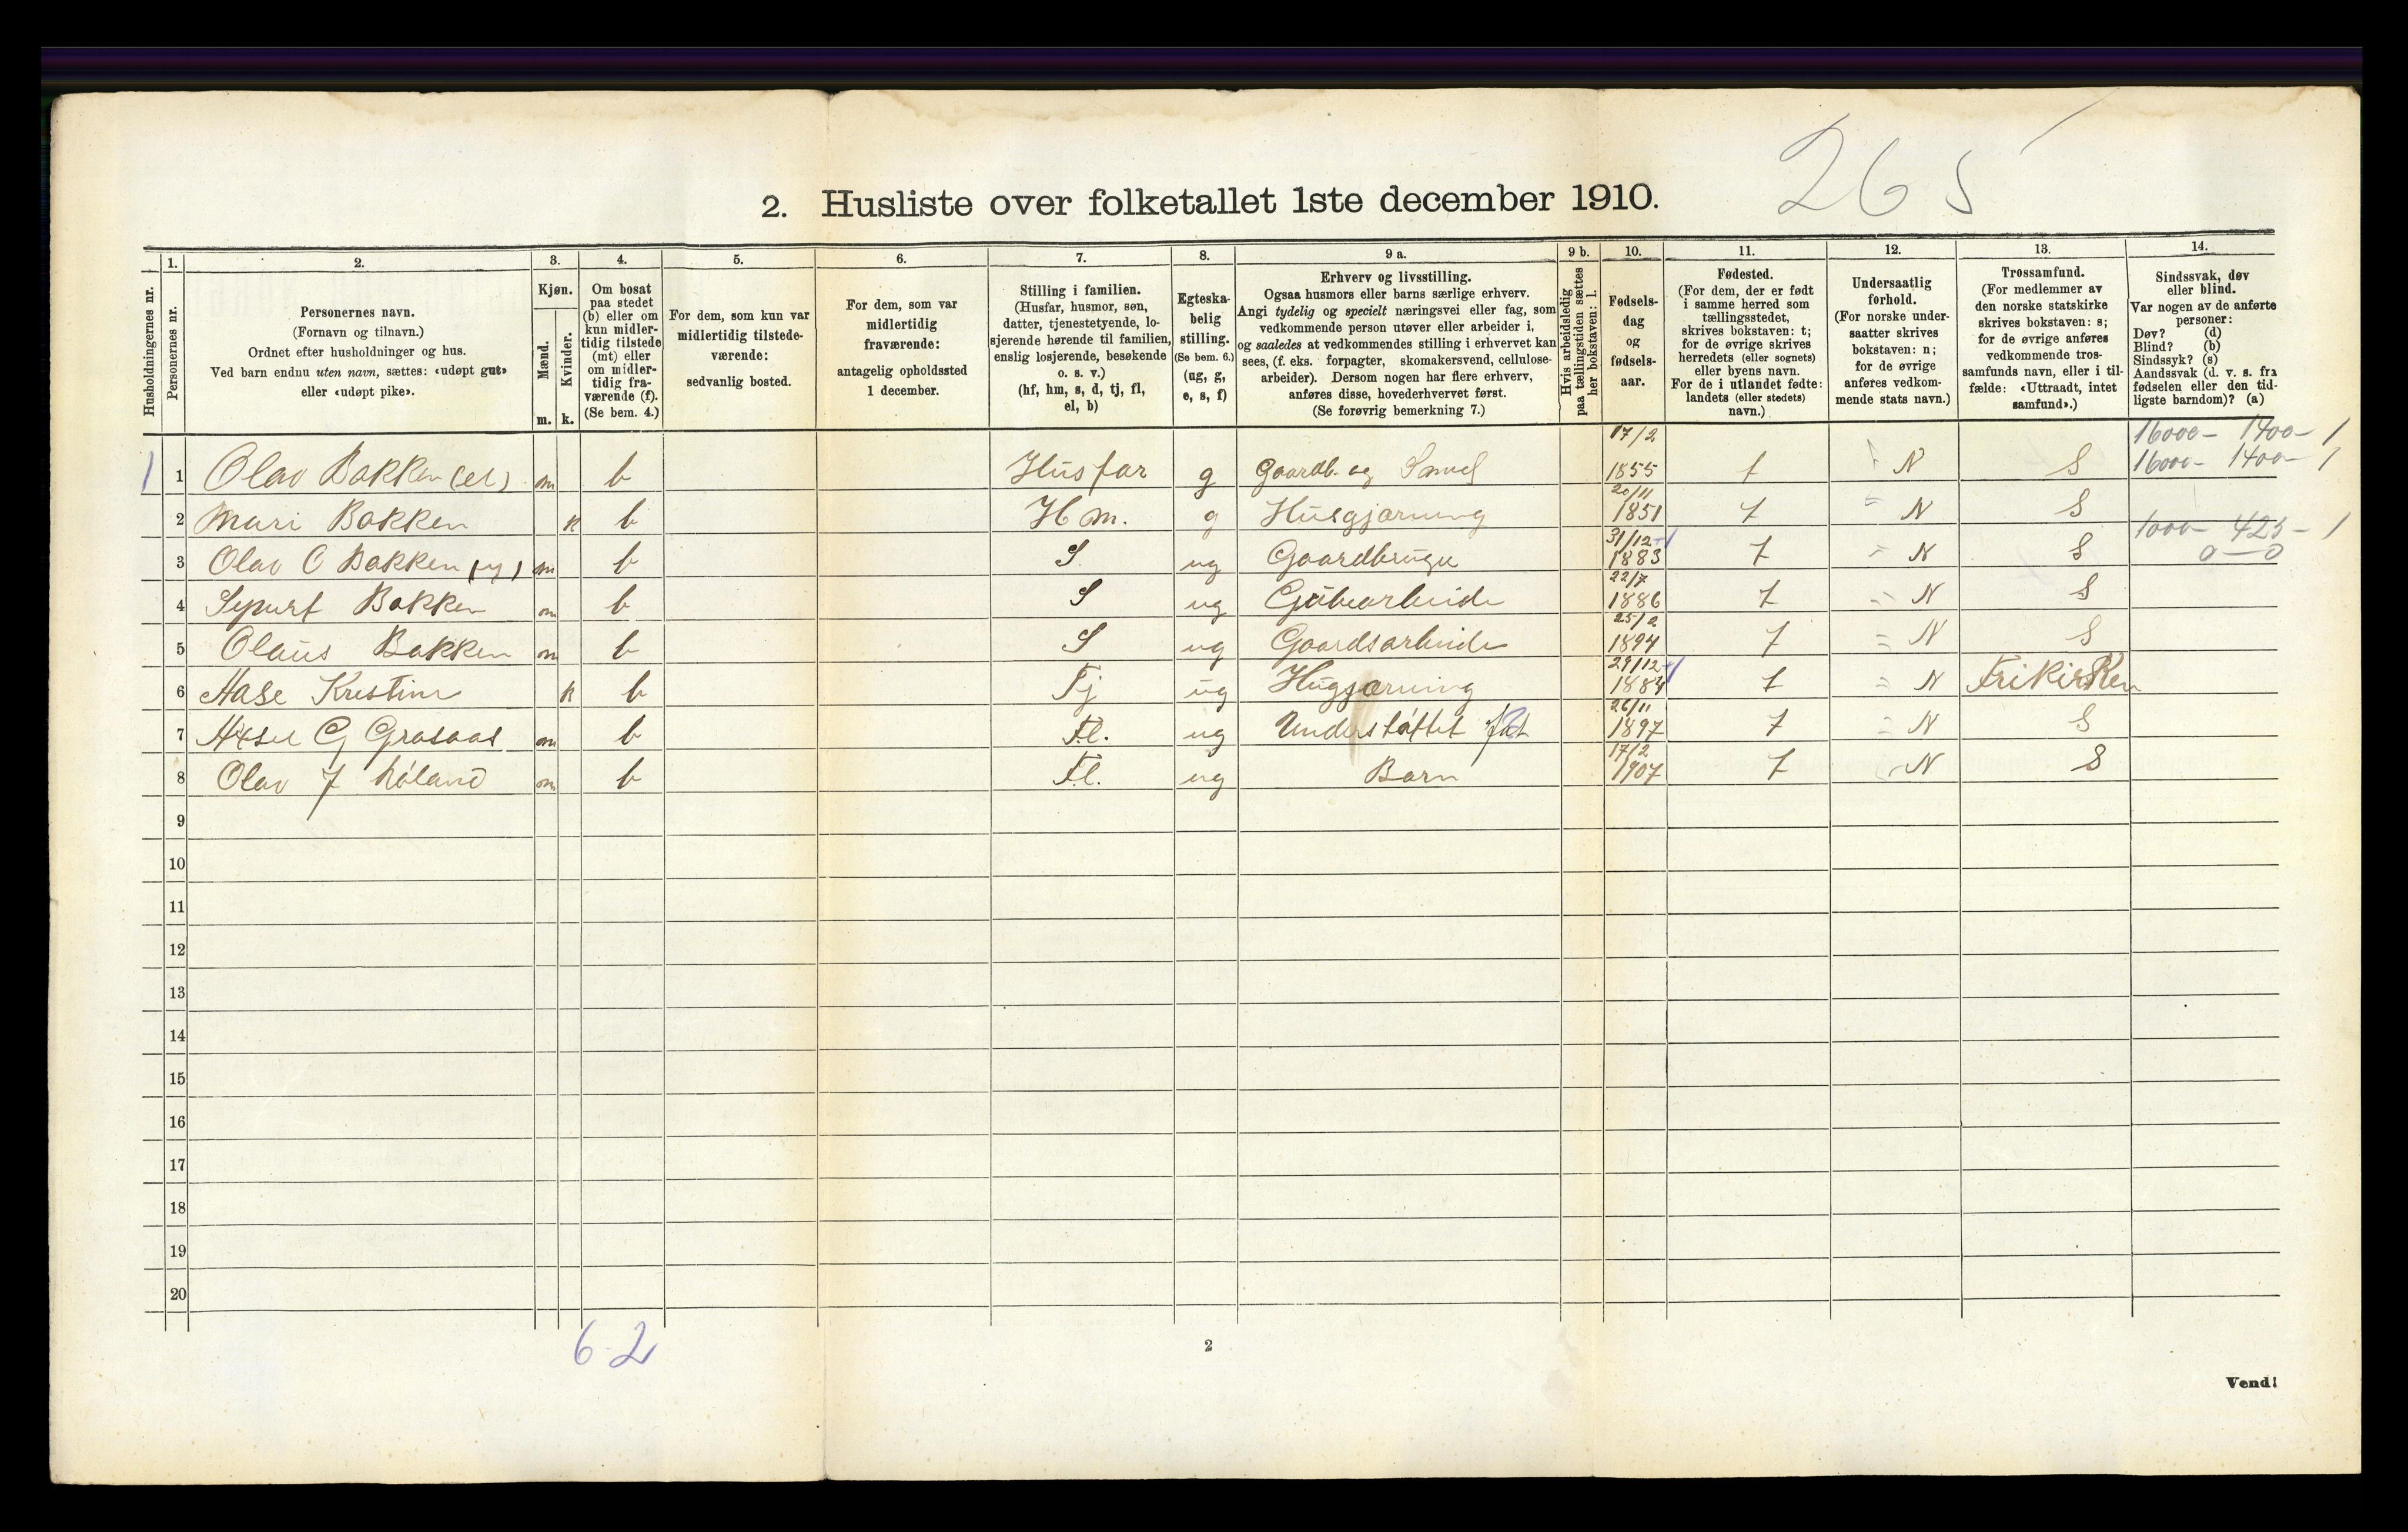 265
2. Husliste over folketallet 1ste december 1910.
Husholdningernes nr.
1. Personernes nr.
2. Personernes navn. (Fornavn og tilnavn.) Ordnet efter husholdninger og hus. Ved barn endnu uten navn, sættes: «udøpt gut» eller «udøpt pike».
3. Kjøn. Mænd. m. Kvinder. k.
4. Om bosat paa stedet (b) eller om kun midler-tidig tilstede (mt) eller om midler-tidig fra-værende (f). (Se bem. 4.)
5. For dem, som kun var midlertidig tilstede-værende: sedvanlig bosted.
6. For dem, som var midlertidig fraværende: antagelig opholdssted 1 december.
7. Stilling i familien. (Husfar, husmor, søn, datter, tjenestetyende, lo-sjerende hørende til familien, enslig losjerende, besøkende o. s. v.) (hf, hm, s, d, tj, fl, el, b)
8. Egteska-belig stilling. (Se bem. 6.) (ug, g, e, s, f)
9 a. Erhverv og livsstilling. Ogsaa husmors eller barns særlige erhverv. Angi tydelig og specielt næringsvei eller fag, som vedkommende person utøver eller arbeider i, og saaledes at vedkommendes stilling i erhvervet kan sees, (f. eks. forpagter, skomakersvend, cellulose-arbeider). Dersom nogen har flere erhverv, anføres disse, hovederhvervet først. (Se forøvrig bemerkning 7.)
9 b. Hvis arbeidsledig paa tællingstiden sættes her bokstaven: l.
10. Fødsels-dag og fødsels-aar.
11. Fødested. (For dem, der er født i samme herred som tællingsstedet, skrives bokstaven: t; for de øvrige skrives herredets (eller sognets) eller byens navn. For de i utlandet fødte: landets (eller stedets) navn.)
12. Undersaatlig forhold. (For norske under-saatter skrives bokstaven: n; for de øvrige anføres vedkom-mende stats navn.)
13. Trossamfund. (For medlemmer av den norske statskirke skrives bokstaven: s; for de øvrige anføres vedkommende tros-samfunds navn, eller i til-fælde: «Uttraadt, intet samfund».)
14. Sindssvak, døv eller blind. Var nogen av de anførte personer: Døv? (d) Blind? (b) Sindssyk? (s) Aandssvak (d. v. s. fra fødselen eller den tid-ligste barndom)? (a)
16000 - 1400 - 1
1 1 Olav Bakken (el) m b Husfar g Gaardb. og Smed 17/2 1855 t N S 16000 - 1400 - 1
2 Mari Bakken k b Hm. g Husgjærning 20/11 1851 t N S
3 Olav O Bakken (y) m b S ug Gaardbruger 31/12 1883 t N S 1000 - 425 - 1 0 - 0
4 Sjurt Bakken m b S ug 22/7 1886 t N S
5 Olaus Bakken m b S ug Gaardsarbeide 25/2 1894 t N S
6 Aase Kristine k b Tj ug Husgjærning 29/12 1884 t N Frikirken
7 Aksel G Grasaas m b Fl. ug Understøttet 26/11 1897 t N S
8 Olav J Høland m b Fl. ug Barn 17/2 1907 t N S
9
10
11
12
13
14
15
16
17
18
19
20
6-2
2
Vend!